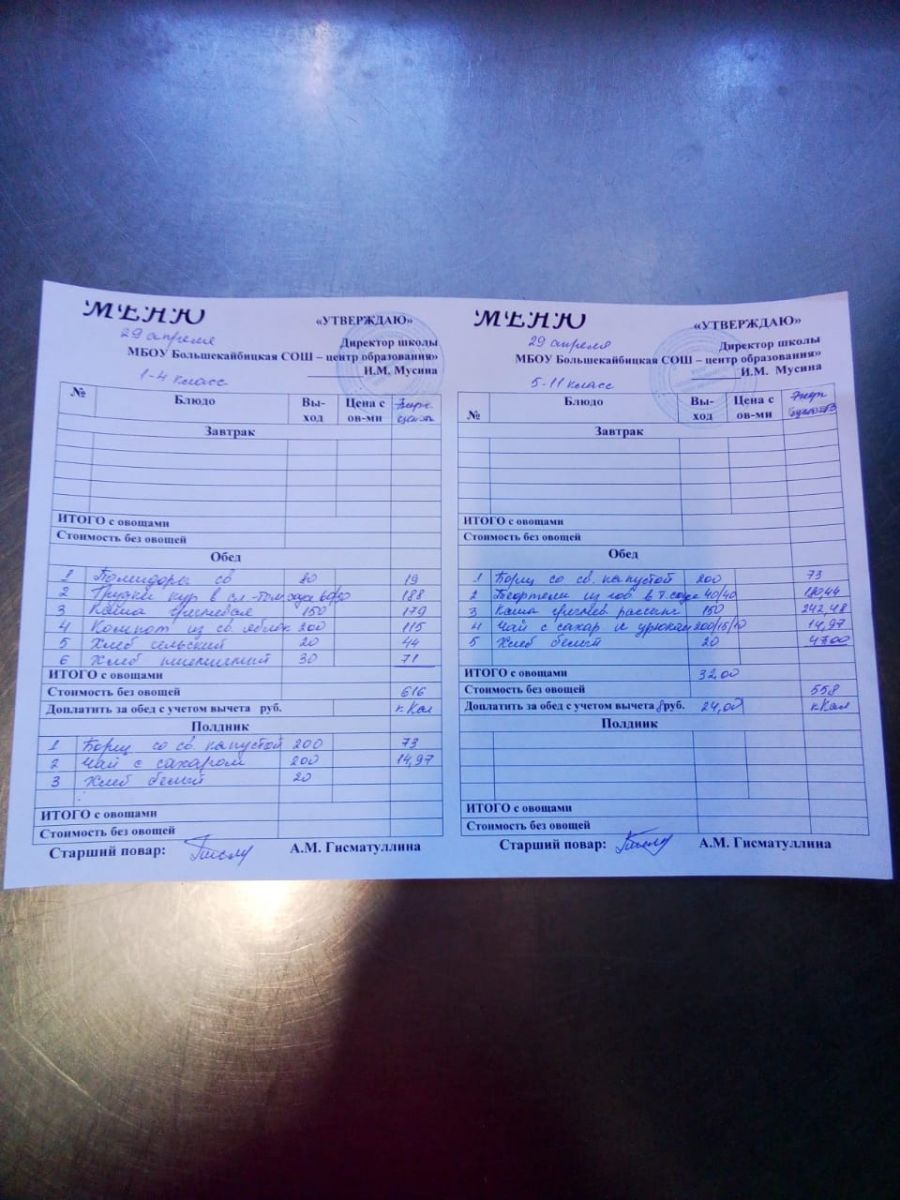 МЕНЮ
29 апреля
«УТВЕРЖДАЮ»
Директор школы
МБОУ Большекайбицкая СОШ – центр образования»
И.М. Мусина
1-4 класс
№ Блюдо Вы-ход Цена с ов-ми
Завтрак
ИТОГО с овощами
Стоимость без овощей
Обед
1 Помидоры св 19
2 кур в 188
3 Каша гречневая 150 179
4 Компот из св. яблок 200 115
5 Хлеб сельский 20 44
6 Хлеб пшеничный 30 71
ИТОГО с овощами
Стоимость без овощей 616
Доплатить за обед с учетом вычета руб. кКал
Полдник
1 Борщ со св. капустой 200 73
2 Чай с сахаром 200 14,97
3 Хлеб белый 20
ИТОГО с овощами
Стоимость без овощей
Старший повар: А.М. Гисматуллина
МЕНЮ
29 апреля
«УТВЕРЖДАЮ»
Директор школы
МБОУ Большекайбицкая СОШ – центр образования»
И.М. Мусина
5-11 класс
№ Блюдо Вы-ход Цена с ов-ми
Завтрак
ИТОГО с овощами
Стоимость без овощей
Обед
1 Борщ со св. капустой 200 73
2 из в т. соусе 40/40
3 Каша гречнев рассып 150 242,48
4 Чай с сахар и урюком 200/15/10 14,97
5 Хлеб белый 20 47,00
ИТОГО с овощами 32,00
Стоимость без овощей 558
Доплатить за обед с учетом вычета 8 руб. 24,00 кКал
Полдник
ИТОГО с овощами
Стоимость без овощей
Старший повар: А.М. Гисматуллина